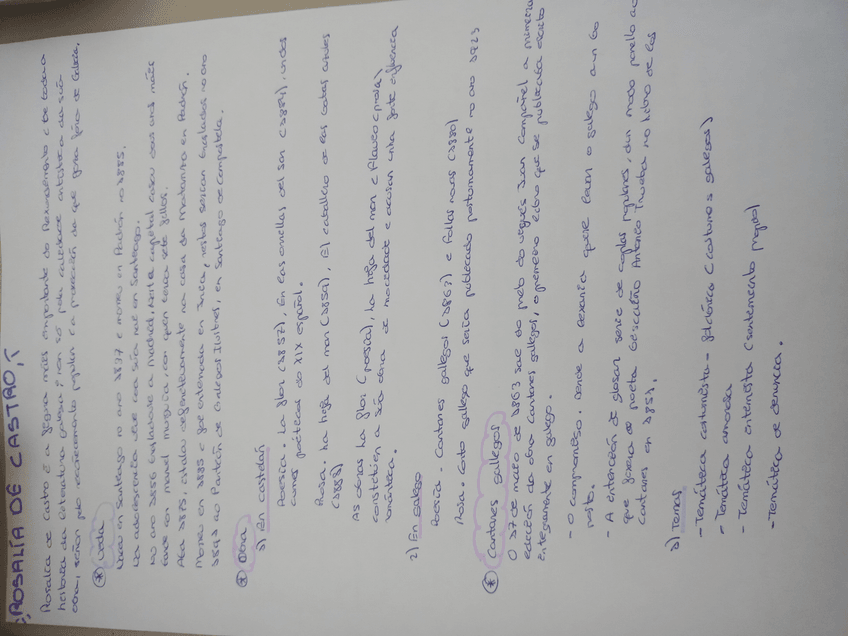 ROSALÍA DE CASTRO,
Rosalía de Castro é a figura máis importante do Rexurdimento e de toda a
historia da literatura galega; non só pola calidade artística da súa
obra, senón polo recoñecemento popular e a proxección da que goza fóra de Galicia.
Vida
Naceu en Santiago no ano 1837 e morreu en Padrón no 1885.
Na adolescencia vive coa súa nai en Santiago.
No ano 1856 trasládase a Madrid. Nesta capital casou dous anos máis
tarde con Manuel Murguía, con quen tivera sete fillos.
Ata 1875, establecese definitivamente na casa da Matanza en Padrón.
Morreu en 1885 e foi enterrada en Iria, restos serían trasladados no ano
1891 ao Panteón de Galegos Ilustres, en Santiago de Compostela.
Obra
1) En castelán
Poesía. La flor (1857), En las orillas del Sar (1884),
cumes poéticas do XIX español.
Prosa. La hija del mar (1859), El caballero de las botas azules
As obras La flor (poesía), La hija del mar e Flavio (prosa)
constitúen a súa obra de mocidade e acusan unha forte influencia
romántica.
2) En galego
Poesía - Cantares gallegos (1863) e Follas novas (1880)
Prosa. Conto gallego que sería publicado postumamente no ano 1923
Cantares gallegos
O 17 de maio de 1863 sae do prelo do vigués Juan Compañel a primeira
edición da obra Cantares gallegos, o primeiro libro que se publicaba escrito
integramente en galego.
- O compromiso, dende a xerarquía quere levar o galego
- A intención de glosar serie de coplas populares, dun modo parello ao
que fixera o poeta Antonio Trueba no Libro de los
Cantares en 1851.
a) Temas
- Temática costumista - folclórica (costumes galegos)
- Temática amorosa
- Temática intimista (sentimiento propio)
- Temática de denuncia.